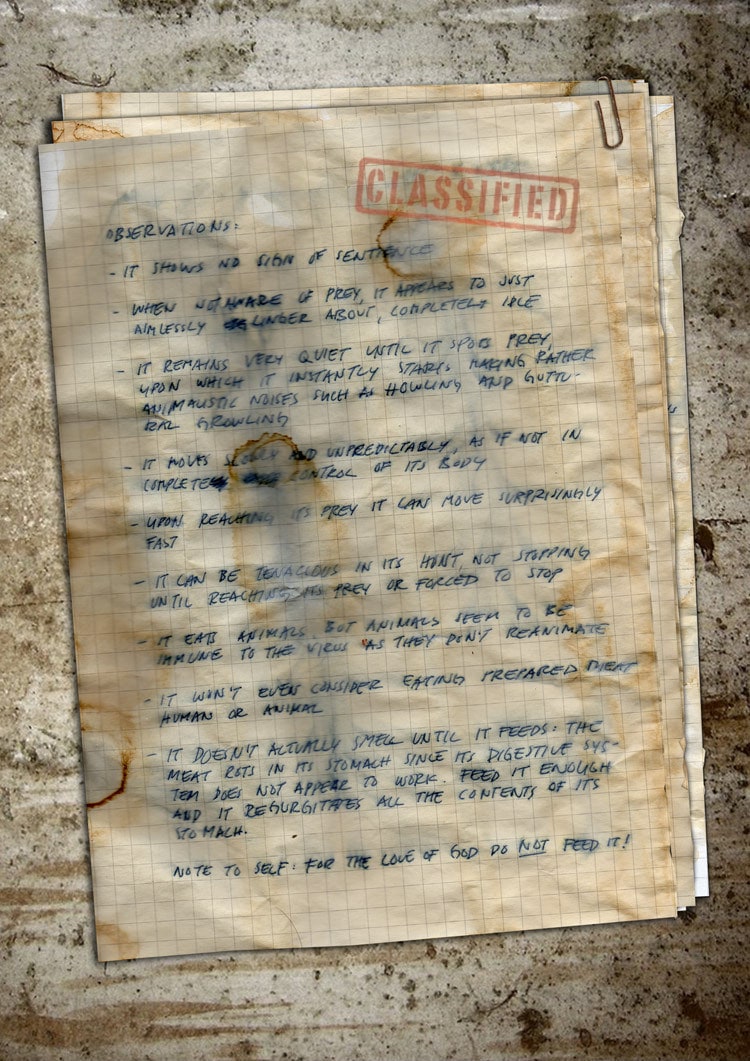 CLASSIFIED
OBSERVATIONS:
- IT SHOWS NO SIGN OF SENTIENCE
- WHEN NOT AWARE OF PREY, IT APPEARS TO JUST
AIMLESSLY LINGER ABOUT, COMPLETELY IDLE
- IT REMAINS VERY QUIET UNTIL IT SPOTS PREY,
UPON WHICH IT INSTANTLY STARTS MAKING RATHER
ANIMALISTIC NOISES SUCH AS HOWLING AND GUTTU-
RAL GROWLING
- IT MOVES SLOWLY AND UNPREDICTABLY, AS IF NOT IN
COMPLETE CONTROL OF ITS BODY
- UPON REACHING ITS PREY IT CAN MOVE SURPRISINGLY
FAST
- IT CAN BE TENACIOUS IN ITS HUNT, NOT STOPPING
UNTIL REACHING ITS PREY OR FORCED TO STOP
- IT EATS ANIMALS, BUT ANIMALS SEEM TO BE
IMMUNE TO THE VIRUS AS THEY DON'T REANIMATE
- IT WON'T EVEN CONSIDER EATING PREPARED MEAT
HUMAN OR ANIMAL
- IT DOESN'T ACTUALLY SMELL UNTIL IT FEEDS: THE
MEAT ROTS IN ITS STOMACH SINCE ITS DIGESTIVE SYS-
TEM DOES NOT APPEAR TO WORK. FEED IT ENOUGH
AND IT REGURGITATES ALL THE CONTENTS OF ITS
STOMACH.
NOTE TO SELF: FOR THE LOVE OF GOD DO NOT FEED IT!